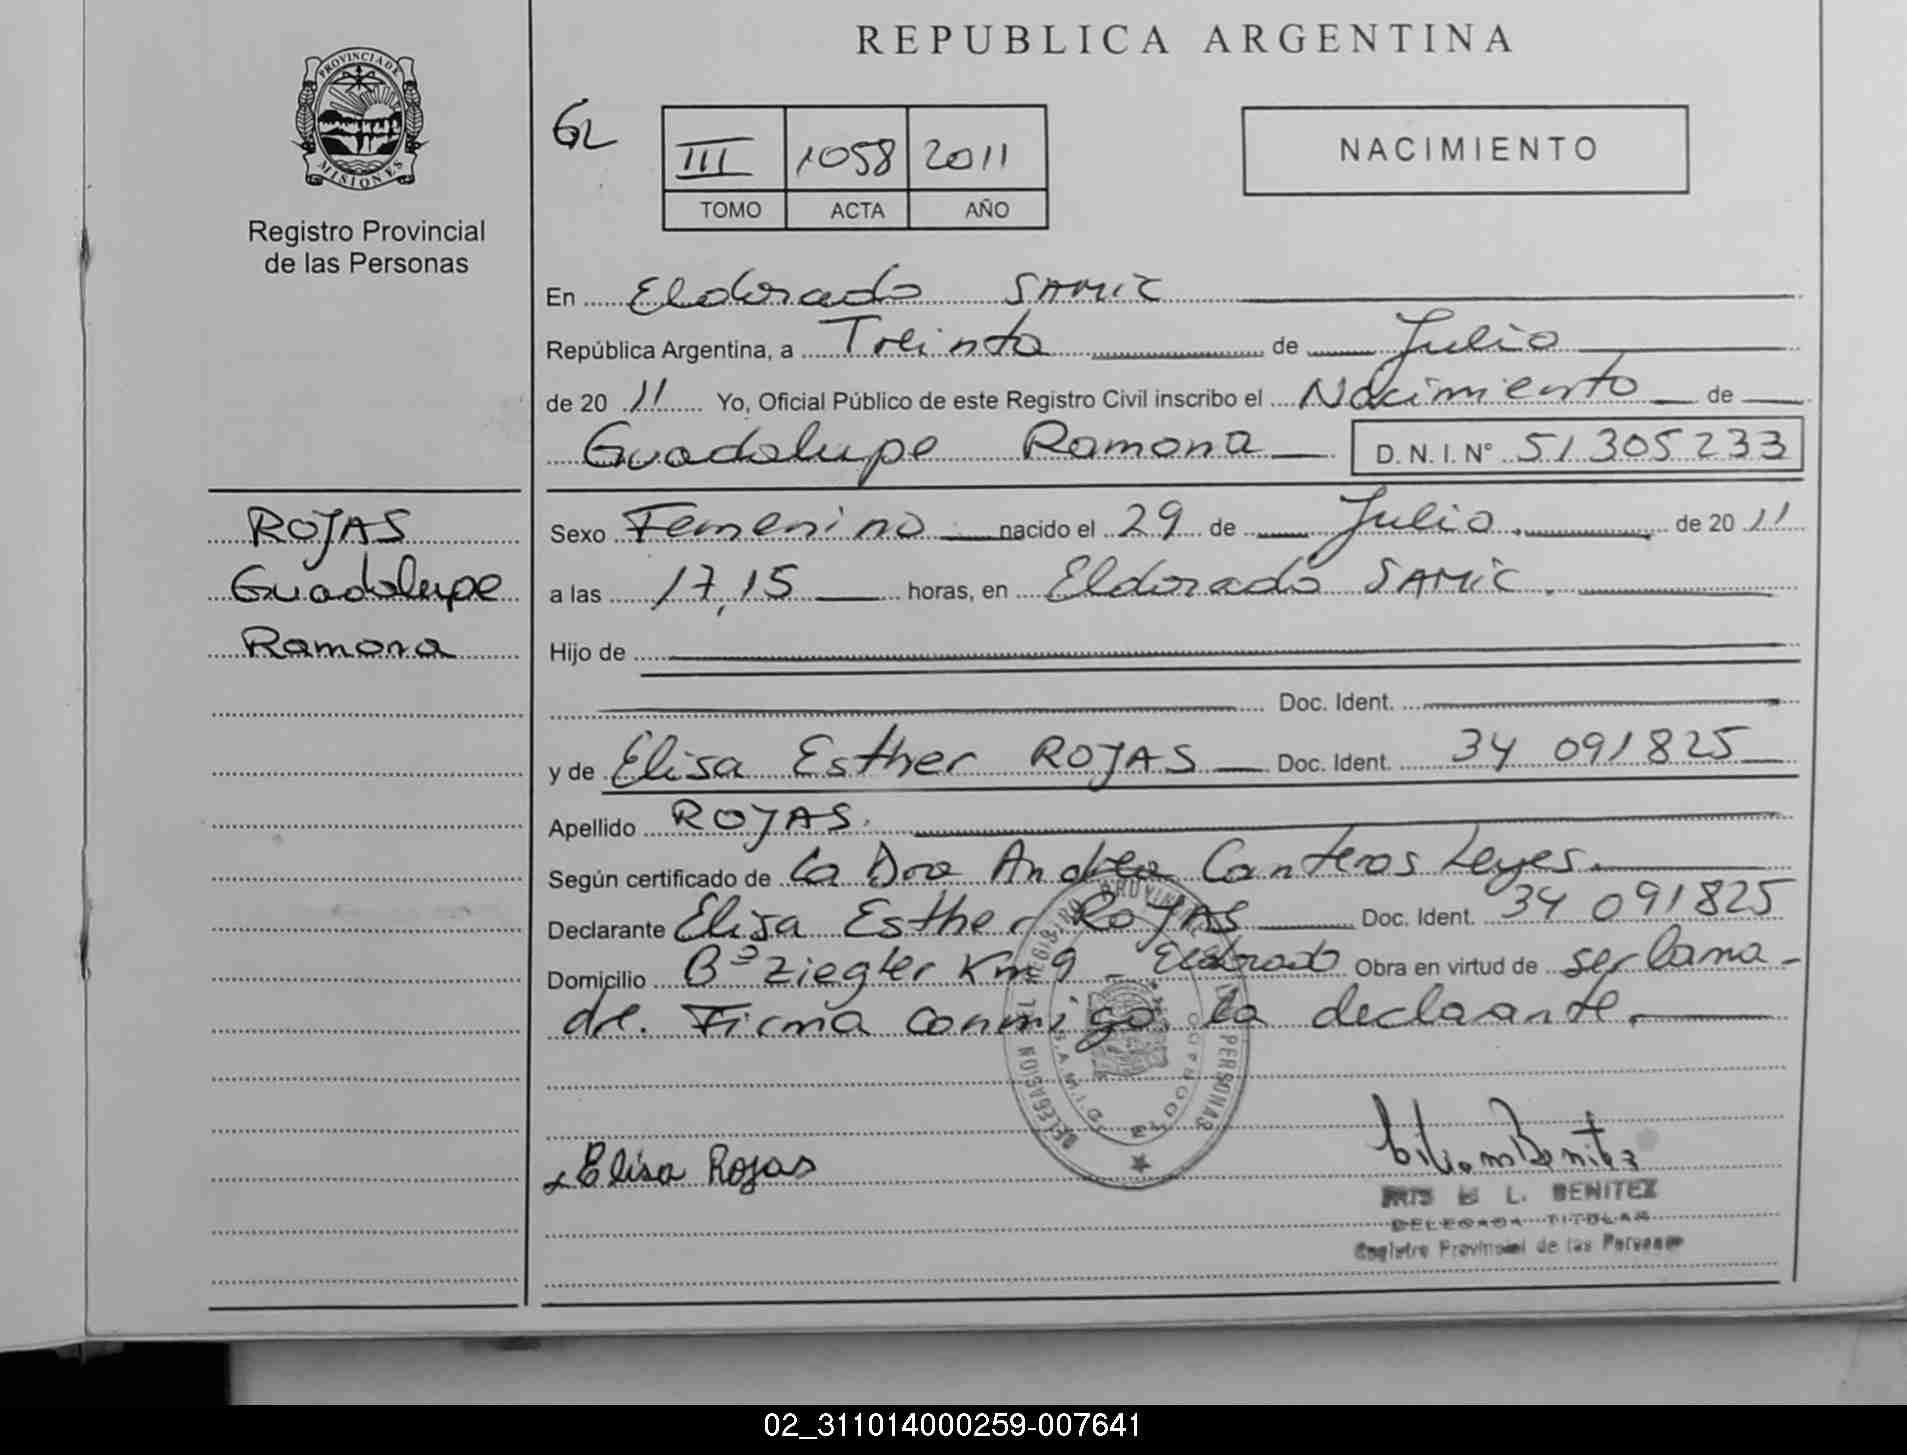 PROVINCIA DE
MISIONES
Registro Provincial
de las Personas
REPUBLICA ARGENTINA
GL
III 1058 2011
TOMO ACTA AÑO
NACIMIENTO
En Eldorado SAMIC
República Argentina, a Treinta de Julio
de 20 11 Yo, Oficial Público de este Registro Civil inscribo el Nacimiento de
Guadalupe Ramona D.N.I. N° 51 305 233
ROJAS
Guadalupe
Ramona
Sexo Femenino nacido el 29 de Julio. de 20 11
a las 17,15 horas, en Eldorado SAMIC.
Hijo de
Doc. Ident.
y de Elisa Esther ROJAS Doc. Ident. 34 091825
Apellido ROJAS.
Según certificado de La Dra Andrea Canteros Leyes.
Declarante Elisa Esther ROJAS Doc. Ident. 34 091825
Domicilio B° Ziegler Km 9 - Eldorado Obra en virtud de ser la ma-
dre. Firma conmigo la declarante.
DELEGACION REGISTRO PROVINCIAL DE LAS PERSONAS
S.A.M.I.C. ELDORADO
Elisa Rojas
L. BENITEZ
DELEGADA TITULAR
Registro Provincial de las Personas
02_311014000259-007641